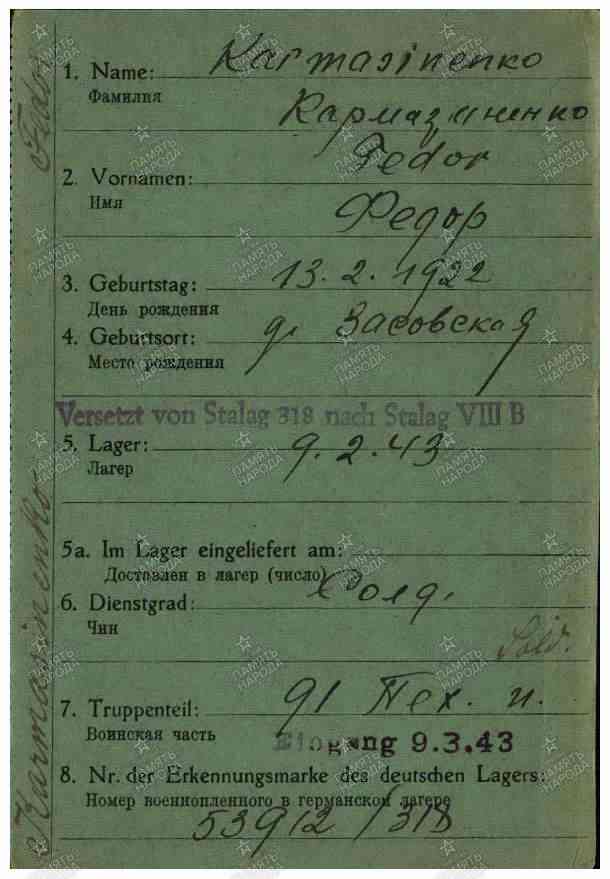 Karmasinenko
1. Name:
Фамилия
Кармазиненко
Fedor
2. Vornamen:
Имя
Федор
3. Geburtstag: 13.2.1922
День рождения
4. Geburtsort: д. Засовская
Место рождения
Versetzt von Stalag 318 nach Stalag VIII B
5. Lager: 9.2.43
Лагерь
5a. Im Lager eingeliefert am:
Доставлен в лагерь (число)
6. Dienstgrad: Солд.
Чин
Sold.
7. Truppenteil: 91 Пех. п.
Воинская часть
Eingang 9.3.43
8. Nr. der Erkennungsmarke des deutschen Lagers:
Номер военнопленного в германском лагере
53912/318
Karmasinenko Fedor
ПАМЯТЬ
НАРОДА